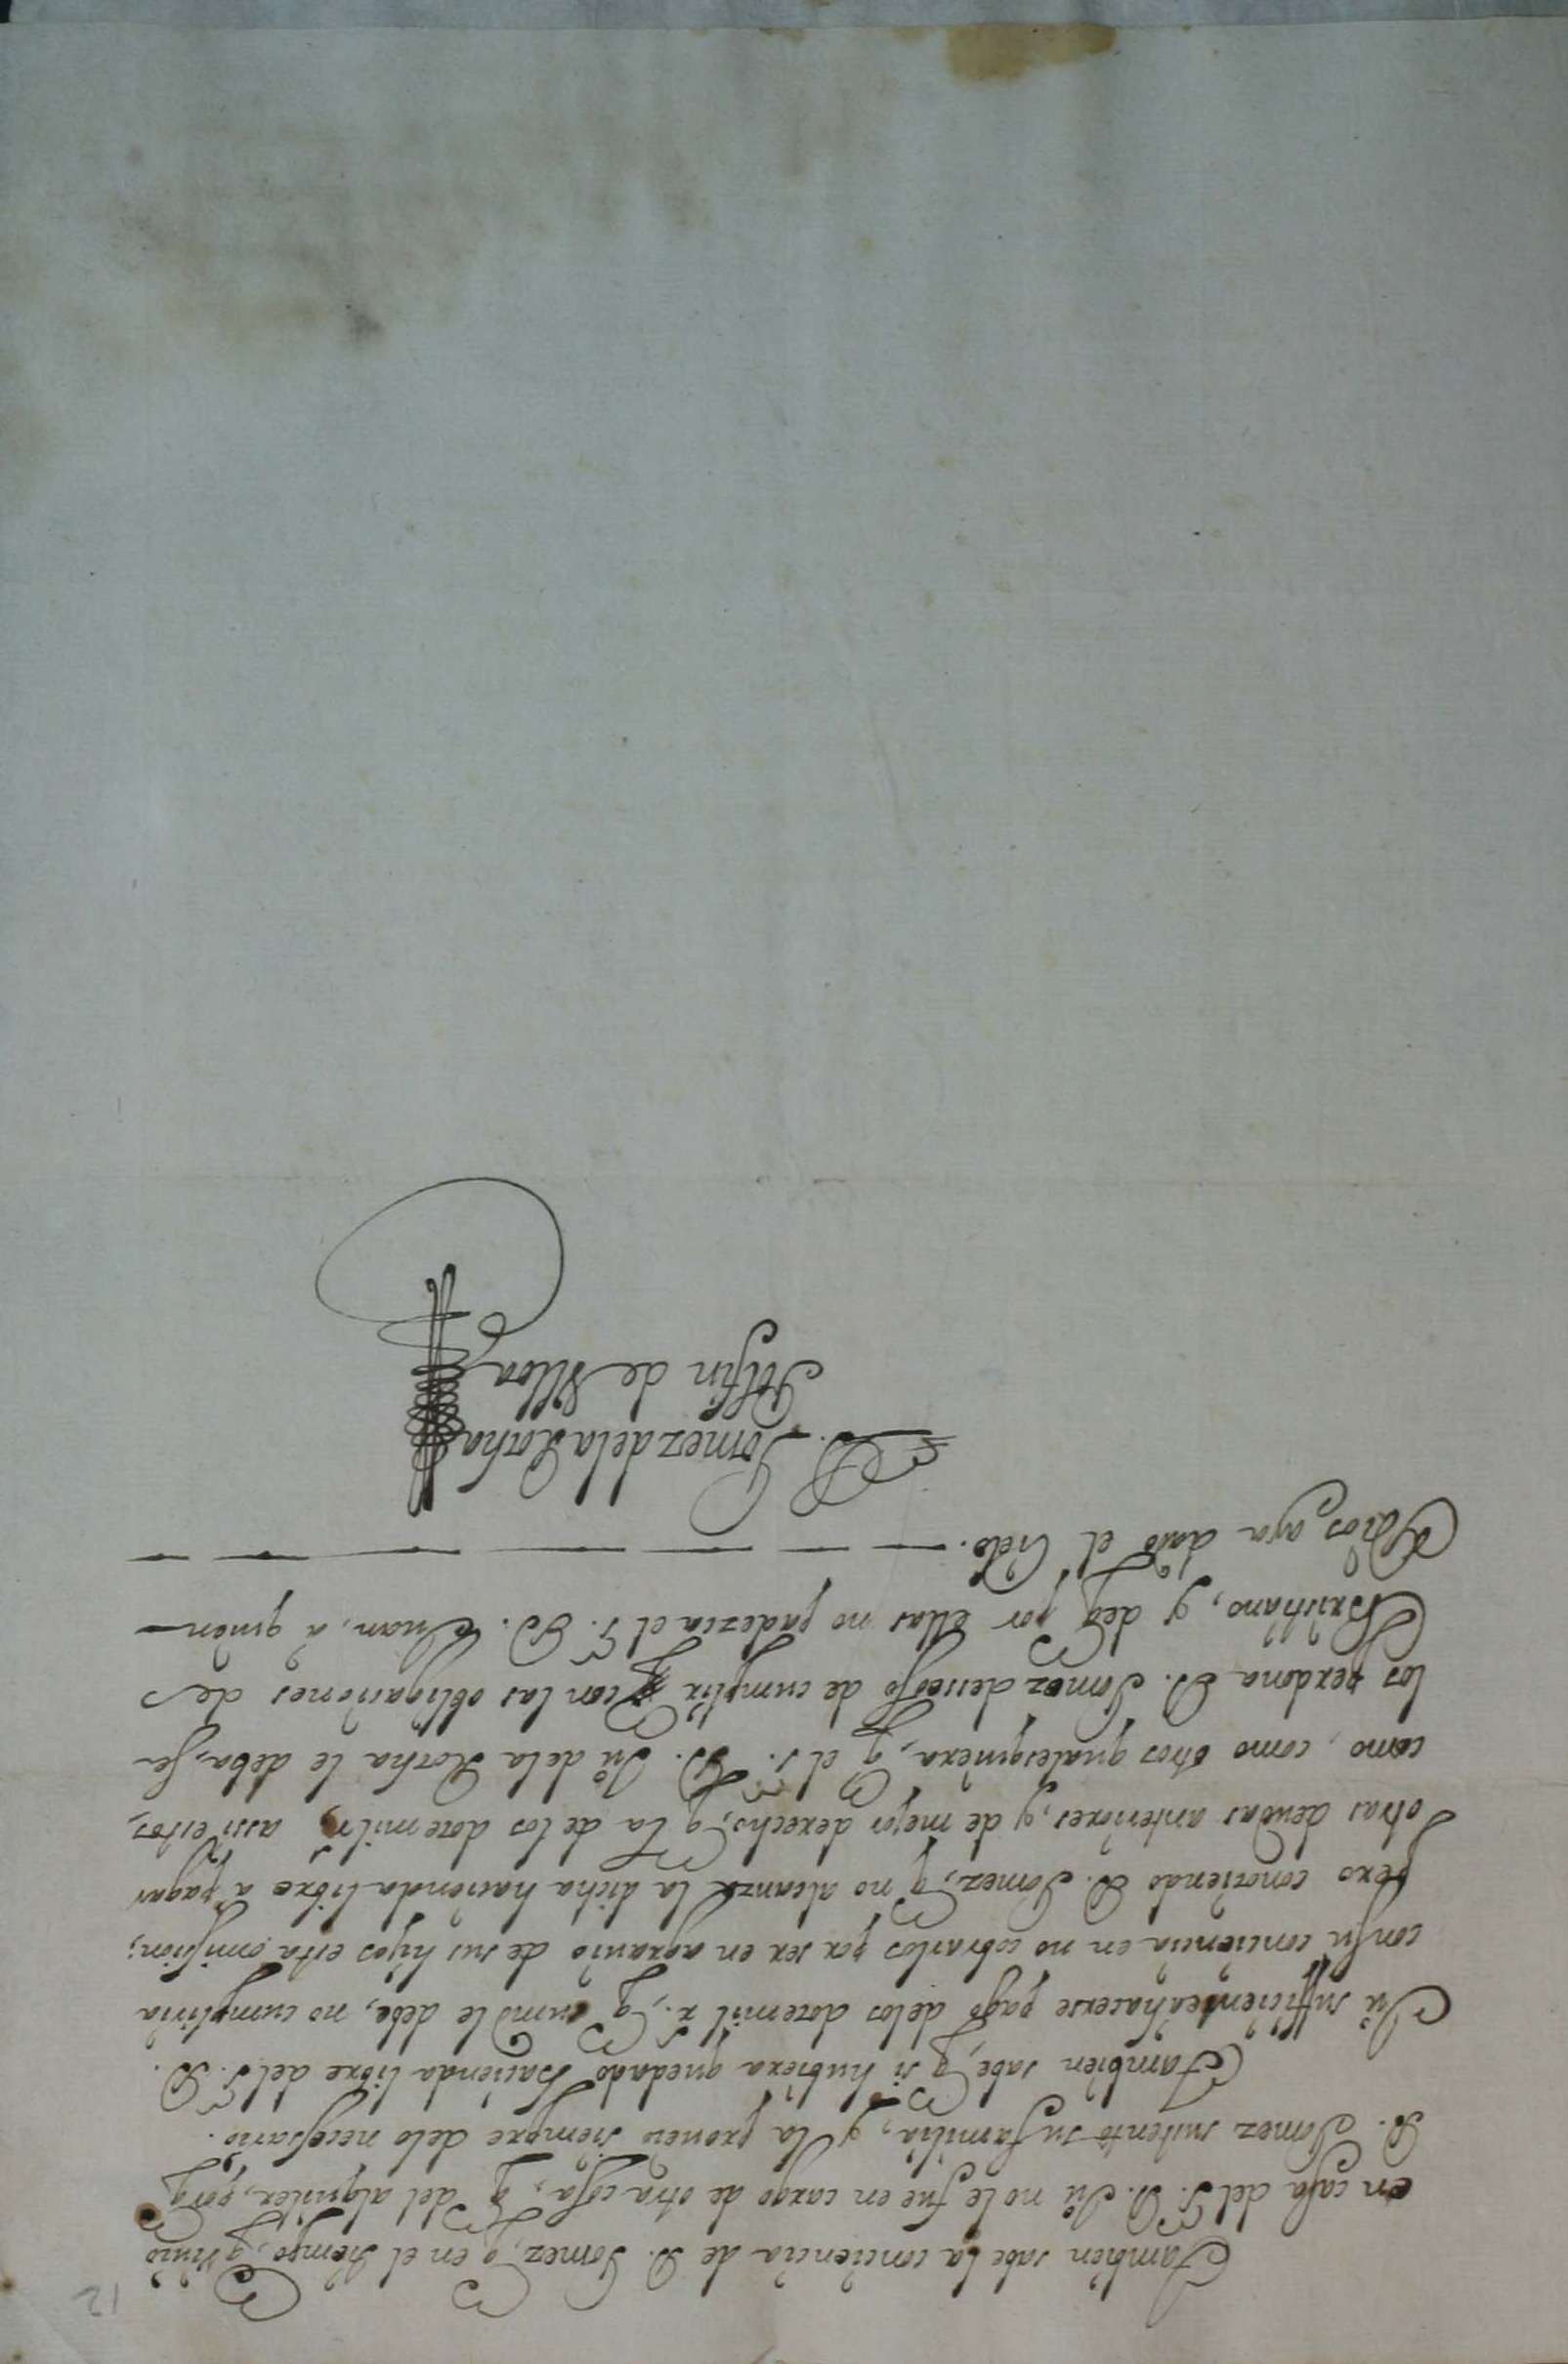 12
Tambien sabe la conciencia de D. Gomez, q en el tiempo, q viuio
en casa del S.r D. Ju.o no le fue en cargo de otra cosa, q del alquiler, porq
D. Gomez sustentó su familia, y la proueió siempre delo necessario.
Tambien sabe, q si hubiera quedado hacienda libre del S.r D.
Ju.o sufficiente â hacerse pago delos doze mil r.s, q le debe, no cumpliria
con su conciencia en no cobrarlos por ser en agrauio de sus hijos esta omission;
Pero conoziendo D. Gomez, q no alcanza la dicha hacienda libre à pagar
otras deudas anteriores, y de mejor derecho, q la de los doze mil r.s, assi estos,
como, como otros qualesquiera, q el S.r D. Ju.o dela Rocha le deba, se
los perdona D. Gomez desseoso de cumplir con las obligaciones de
Christiano, y deq por ellas no padezca el S.r D. Juan, à quien
Dios aya dado el Cielo.
D. Gomez dela Rocha
Golfin de Ulloa